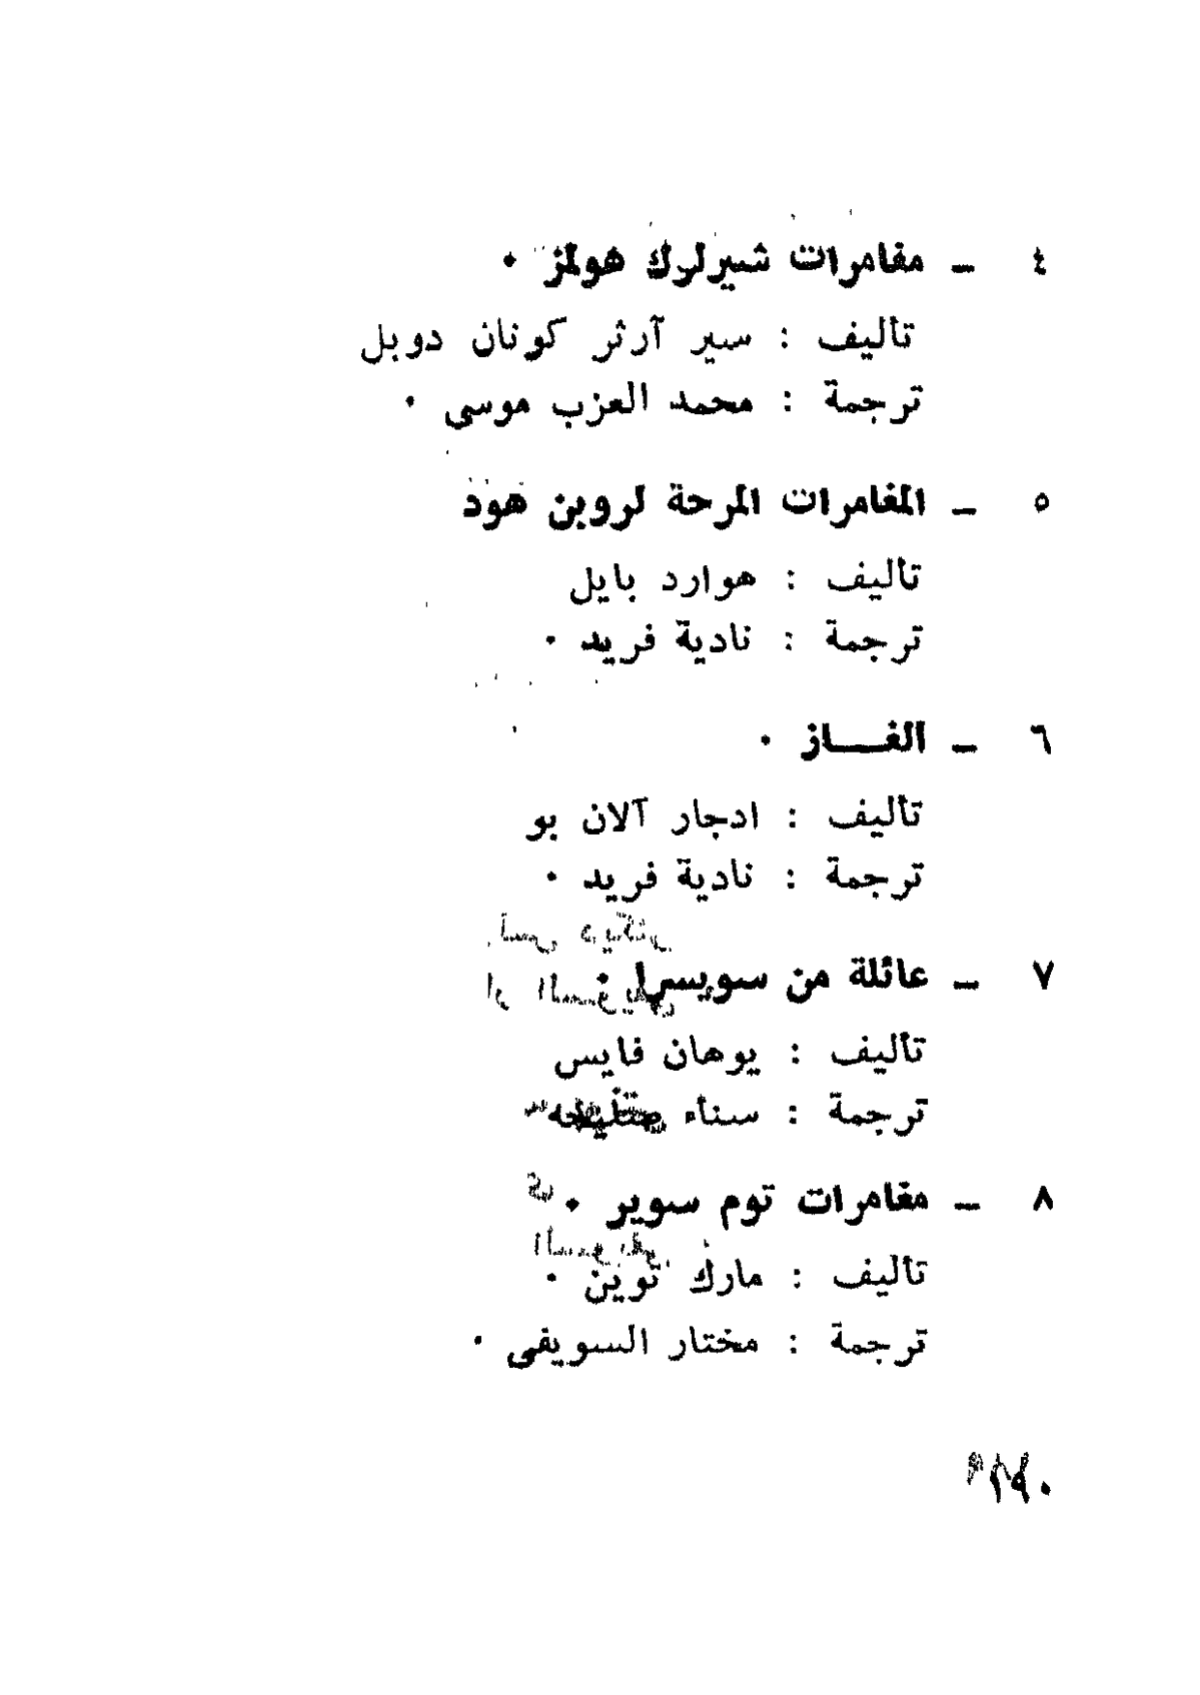 ٤ ـ مغامرات شيرلوك هولمز ٠
تأليف : سير آرثر كونان دوبل
ترجمة : محمد العزب موسى ٠
٥ ـ المغامرات المرحة لروبن هود
تأليف : هوارد بايل
ترجمة : نادية فريد ٠
٦ ـ الغـــاز ٠
تأليف : ادجار آلان بو
ترجمة : نادية فريد ٠
٧ ـ عائلة من سويسرا ٠
تأليف : يوهان فايس
ترجمة : سناء
٨ ـ مغامرات توم سوير ٠
تأليف : مارك توين ٠
ترجمة : مختار السويفى ٠
١٩٠